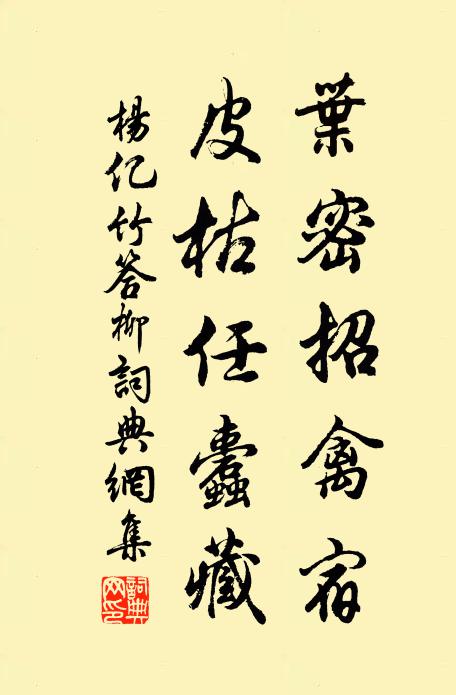 葉密招禽宿
皮枯任蠹藏
楊億竹答柳詞典網集
詞典網印